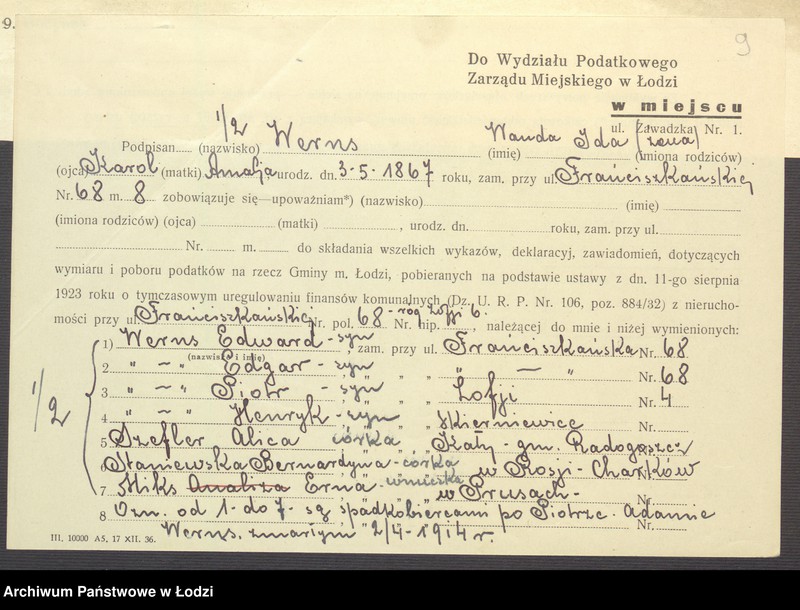 9.
9
Do Wydziału Podatkowego
Zarządu Miejskiego w Łodzi
w miejscu
ul. Zawadzka Nr. 1.
1/2 Werns Wanda Ida (żona)
Podpisan (nazwisko) (imię) (imiona rodziców)
(ojca) Karol (matki) Amalja urodz. dn. 3-5-1867 roku, zam. przy ul. Franciszkańskiej
Nr. 68 m. 8 zobowiązuje się—upoważniam*) (nazwisko) (imię)
(imiona rodziców) (ojca) (matki) , urodz. dn. roku, zam. przy ul.
Nr. m. do składania wszelkich wykazów, deklaracyj, zawiadomień, dotyczących
wymiaru i poboru podatków na rzecz Gminy m. Łodzi, pobieranych na podstawie ustawy z dn. 11-go sierpnia
1923 roku o tymczasowym uregulowaniu finansów komunalnych (Dz. U. R. P. Nr. 106, poz. 884/32) z nierucho-
mości przy ul. Franciszkańskiej Nr. pol. 68 - róg Zofji 6. Nr. hip. , należącej do mnie i niżej wymienionych:
1) Werns Edward - syn , zam. przy ul. Franciszkańska Nr. 68
(nazwisko i imię)
2 " ~ " Edgar - syn " " " — " Nr. 68
3 " ~ " Piotr - syn " " Zofji Nr. 4
1/2
4 " ~ " Henryk - syn " " Skierniewice Nr.
5 Szefler Alica córka " " Kały - gm. Radogoszcz
Staniewska Bernardyna - córka w Rosji - Charków
7 Miks Amaliza Erna - wnuczka " " w Prusach - Nr.
8 Ozn. od 1- do 7- są spadkobiercami po Piotrze Adamie Nr.
Werns, zmarłym 2/4-1914 r.
III. 10000 A5, 17 XII. 36.
Archiwum Państwowe w Łodzi